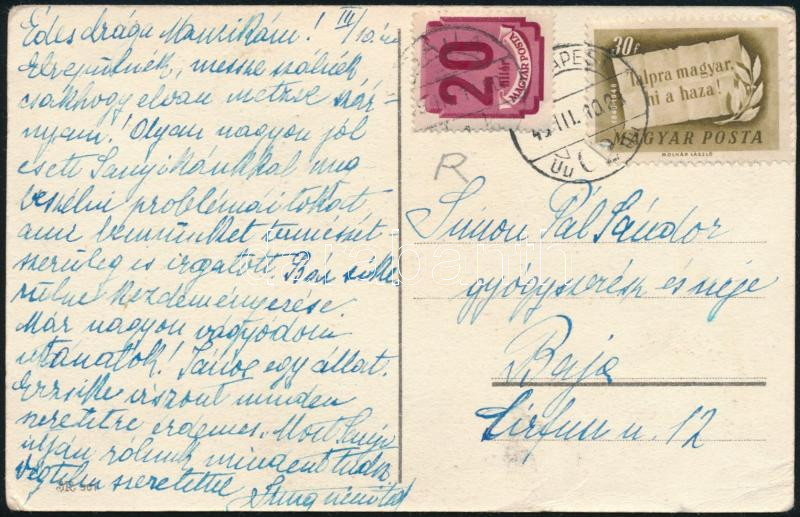 Édes drága Mancikám! III/10.
Elrepülnék, messze szálnék
csakhogy el van metsze szár-
nyam! Olyan nagyon jól
esett Sanyikánkkal meg
beszélni problémáitokat
ami bennünket természet-
szerüleg is izgatott. Bár sike
rülne kezdeményezése.
Már nagyon vágyodom
utánatok! János egy állat.
Erzsike viszont minden
szeretetre érdemes. Most Sanyi
utján rólunk mindent tudsz
Végtelen szeretettel
20
fillér
MAGYAR POSTA
30f
Talpra magyar,
hi a haza!
MAGYAR POSTA
MOLNÁR LÁSZLÓ
R
Simon Pál Sándor
gyógyszerész és neje
Baja
u. 12